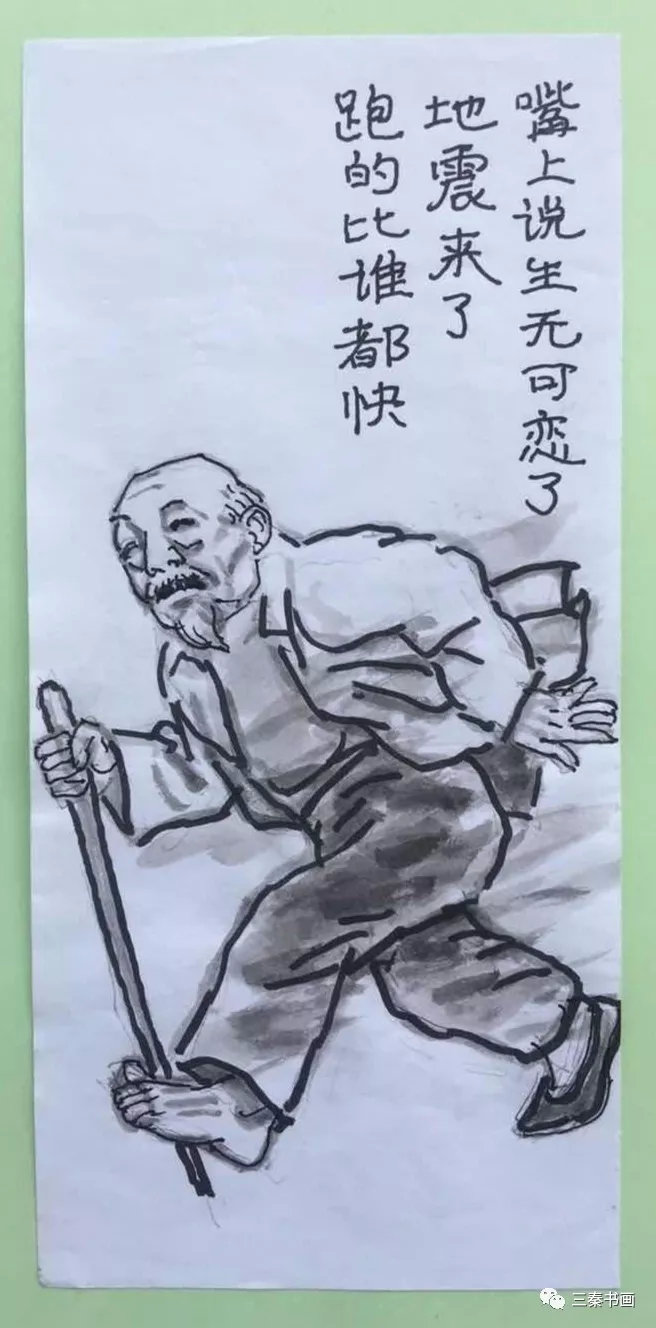 嘴上说生无可恋了
地震来了
跑的比谁都快
三秦书画